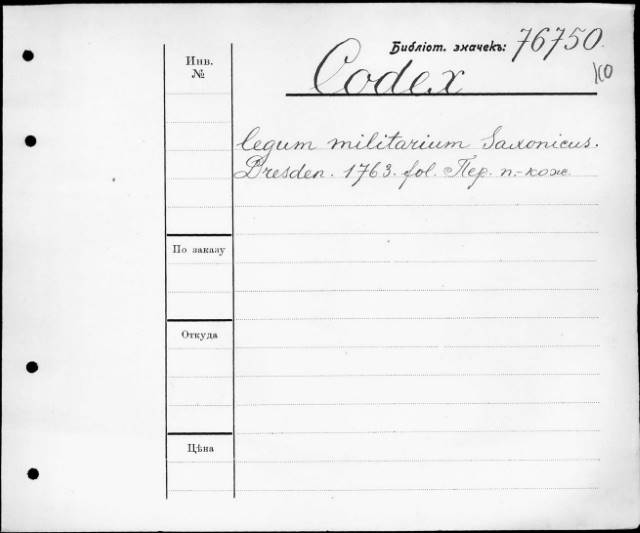 Библіот. значекъ: 76750.
Codex
Инв.
№
legum militarium Saxonicus.
Dresden. 1763. fol. Пер. п.-кож.
По заказу
Откуда
Цѣна